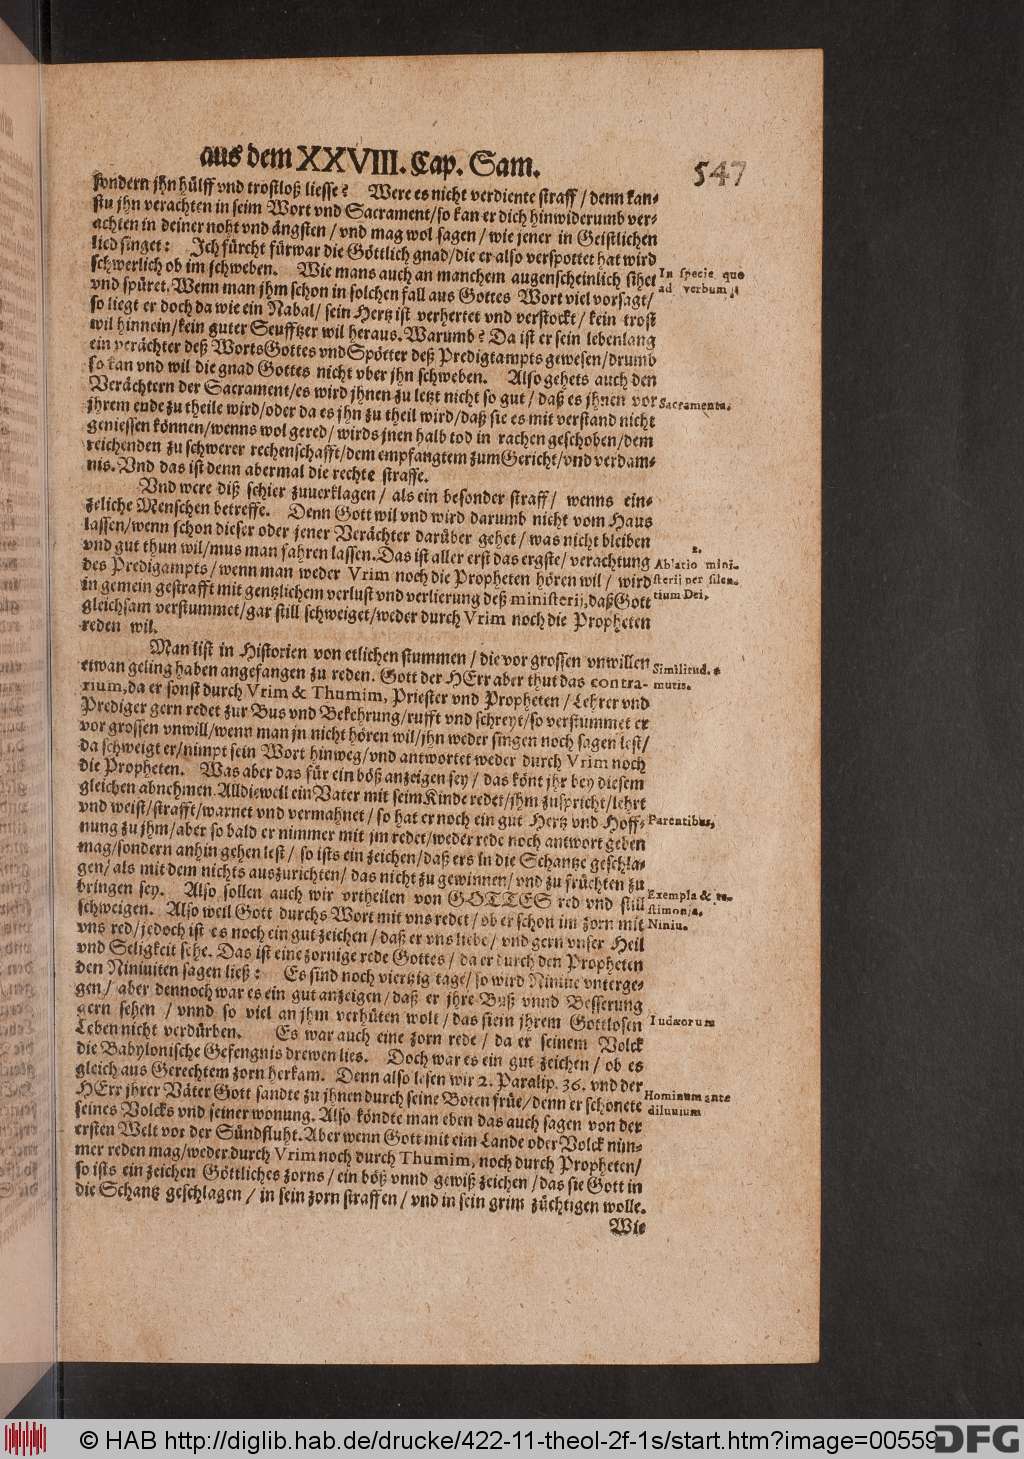 aus dem XXVIII. Cap. Sam.
547
sondern jhn hülff vnd trostloß liesse? Were es nicht verdiente straff / denn kan-
stu jhn verachten in seim Wort vnd Sacrament/so kan er dich hinwiderumb ver-
achten in deiner noht vnd ängsten / vnd mag wol sagen / wie jener in Geistlichen
lied singet: Ich fürcht fürwar die Göttlich gnad/die er also verspottet hat wird
schwerlich ob im schweben. Wie mans auch an manchem augenscheinlich sihet
vnd spüret. Wenn man jhm schon in solchen fall aus Gottes Wort viel vorsagt/
so liegt er doch da wie ein Nabal/ sein Hertz ist verhertet vnd verstockt/ kein trost
wil hinnein/kein guter Seufftzer wil heraus. Warumb? Da ist er sein lebenlang
ein verächter deß Worts Gottes vnd Spötter deß Predigtampts gewesen/drumb
so kan vnd wil die gnad Gottes nicht vber jhn schweben. Also gehets auch den
Verächtern der Sacrament/es wird jhnen zu letzt nicht so gut / daß es jhnen vor
jhrem ende zu theile wird/oder da es jhn zu theil wird/daß sie es mit verstand nicht
geniessen können/wenns wol gered/ wirds jnen halb tod in rachen geschoben/dem
reichenden zu schwerer rechenschafft/dem empfangtem zum Gericht/vnd verdam-
nis. Vnd das ist denn abermal die rechte straffe.
Vnd were diß schier zuuerklagen / als ein besonder straff/ wenns ein-
zeliche Menschen betreffe. Denn Gott wil vnd wird darumb nicht vom Haus
lassen/wenn schon dieser oder jener Verächter darüber gehet / was nicht bleiben
vnd gut thun wil/mus man fahren lassen. Das ist aller erst das ergste/ verachtung
des Predigampts / wenn man weder Vrim noch die Propheten hören wil / wird
in gemein gestrafft mit gentzlichem verlust vnd verlierung deß ministerij, daß Gott
gleichsam verstummet/gar still schweiget/weder durch Vrim noch die Propheten
reden wil.
Man list in Historien von etlichen stummen / die vor grossen vnwillen
etwan geling haben angefangen zu reden. Gott der HErr aber thut das contra-
rium, da er sonst durch Vrim & Thumim, Priester vnd Propheten / Lehrer vnd
Prediger gern redet zur Bus vnd Bekehrung/rufft vnd schreyt/so verstummet er
vor grossen vnwill/wenn man jn nicht hören wil/jhn weder singen noch sagen lest/
da schweigt er/nimpt sein Wort hinweg/vnd antwortet weder durch Vrim noch
die Propheten. Was aber das für ein böß anzeigen sey / das könt jhr bey diesem
gleichen abnehmen. Alldieweil ein Vater mit seim Kinde redet/jhm zuspricht/lehrt
vnd weist/strafft/warnet vnd vermahnet / so hat er noch ein gut Hertz vnd Hoff-
nung zu jhm/aber so bald er nimmer mit jm redet/weder rede noch antwort geben
mag/sondern anhin gehen lest / so ists ein zeichen/daß ers in die Schantze geschla-
gen/ als mit dem nichts auszurichten/ das nicht zu gewinnen/ vnd zu früchten zu
bringen sey. Also sollen auch wir vrtheilen von GOTTES red vnd still
schweigen. Also weil Gott durchs Wort mit vns redet / ob er schon im zorn mit
vns red/jedoch ist es noch ein gut zeichen / daß er vns liebe / vnd gern vnser Heil
vnd Seligkeit sehe. Das ist eine zornige rede Gottes / da er durch den Propheten
den Niniuiten sagen ließ: Es sind noch viertzig tage/ so wird Niniue vnterge-
gen / aber dennoch war es ein gut anzeigen / daß er jhre Buß vnnd Besserung
gern sehen / vnnd so viel an jhm verhüten wolt / das sie in jhrem Gottlosen
Leben nicht verdürben. Es war auch eine zorn rede / da er seinem Volck
die Babylonische Gefengnis drewen lies. Doch war es ein gut zeichen / ob es
gleich aus Gerechtem zorn herkam. Denn also lesen wir 2. Paralip. 36. vnd der
HErr jhrer Väter Gott sandte zu jhnen durch seine Boten früe/denn er schonete
seines Volcks vnd seiner wonung. Also köndte man eben das auch sagen von der
ersten Welt vor der Sündfluht. Aber wenn Gott mit eim Lande oder Volck nim-
mer reden mag/weder durch Vrim noch durch Thumim, noch durch Propheten/
so ists ein zeichen Göttliches zorns / ein böß vnnd gewiß zeichen / das sie Gott in
die Schantz geschlagen / in sein zorn straffen / vnd in sein grim züchtigen wolle.
Wie
In specie quo
ad verbum
Sacramenta.
2.
Ablatio mini-
sterij per silen-
tium Dei.
Similitud. à
mutis.
Parentibus,
Exempla & te-
stimonia.
Niniu.
Iudæorum
Hominum ante
diluuium
© HAB http://diglib.hab.de/drucke/422-11-theol-2f-1s/start.htm?image=00559
DFG